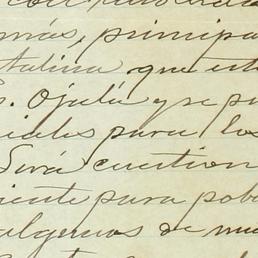 más, principa
talina que est
s. Ojalá y se pu
iales para los
Será cuestion
iente para pob
algunos de mu